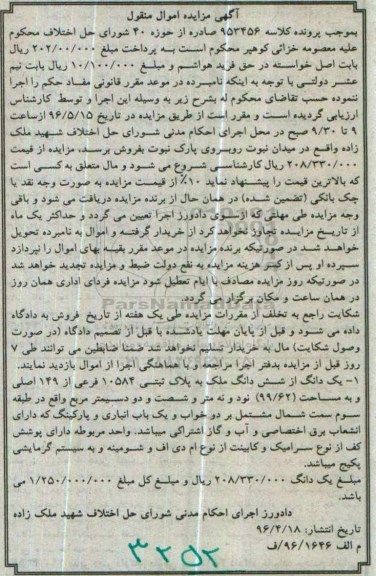 آگهی مزایده اموال منقول
بموجب پرونده کلاسه ۹۵۳۴۵۶ صادره از حوزه ۴۰ شورای حل اختلاف محکوم
علیه معصومه خزائی کوهپر محکوم است به پرداخت مبلغ ۲۰۲/۰۰/۰۰۰ ریال
بابت اصل خواسته در حق فرید هواشم و مبلغ ۱۰/۱۰۰/۰۰۰ ریال بابت نیم
عشر دولتی با توجه به اینکه نامبرده در موعد مقرر قانونی مفاد حکم را اجرا
ننموده حسب تقاضای محکوم له بشرح زیر به وسیله این اجرا و توسط کارشناس
ارزیابی گردیده است و مقرر است از طریق مزایده در تاریخ ۹۶/۵/۱۵ ازساعت
۹ تا ۹/۳۰ صبح در محل اجرای احکام مدنی شورای حل اختلاف شهید ملک
زاده واقع در میدان نبوت روبروی پارک نبوت بفروش برسد. مزایده از قیمت
۲۰۸/۳۳۰/۰۰۰ ریال کارشناسی شروع می شود و مال متعلق به کسی است
که بالاترین قیمت را پیشنهاد نماید ۱۰٪ از قیمت مزایده به صورت وجه نقد یا
چک بانکی (تضمین شده) در همان حال از برنده مزایده دریافت می شود و باقی
وجه مزایده طی مهلتی که از سوی دادورز اجرا تعیین می گردد و حداکثر یک ماه
از تاریخ مزایده تجاوز نخواهد کرد از خریدار گرفته و اموال به نامبرده تحویل
خواهد شد در صورتیکه برنده مزایده در موعد مقرر بقیه بهای اموال را نپردازد
سپرده او پس از کسر هزینه مزایده به نفع دولت ضبط و مزایده تجدید خواهد شد
در صورتیکه روز مزایده مصادف با ایام تعطیل شود مزایده فردای اداری همان روز
در همان ساعت و مکان برگزار می گردد.
شکایت راجع به تخلف از مقررات مزایده طی یک هفته از تاریخ فروش به دادگاه
داده می شود و قبل از پایان مهلت یادشده یا قبل از تصمیم دادگاه (در صورت
وصول شکایت) مال به خریدار تسلیم نخواهد شد ضمنا متقاضیان می توانند طی ۷
روز قبل از مزایده بدفتر اجرا مراجعه و با هماهنگی اجرا از اموال بازدید نمایند.
۱- یک دانگ از شش دانگ ملک به پلاک ثبتی ۱۰۵۸۴ فرعی از ۱۴۹ اصلی
و به مساحت (۹۹/۶۲) نود و نه متر و شصت و دو دسیمتر مربع واقع در طبقه
سوم سمت شمال مشتمل بر دو خواب و یک باب انباری و پارکینگ که دارای
انشعاب برق اختصاصی و آب و گاز اشتراکی میباشد. واحد مربوطه دارای پوشش
کف از نوع سرامیک و کابینت از نوع ام دی اف و شومینه و به سیستم گرمایشی
پکیج میباشد.
مبلغ یک دانگ ۲۰۸/۳۳۰/۰۰۰ ریال و مبلغ کل مبلغ ۱/۲۵۰/۰۰۰/۰۰۰ می
باشد.
دادورز اجرای احکام مدنی شورای حل اختلاف شهید ملک زاده
تاریخ انتشار: ۹۶/۴/۱۸
م الف ۹۶/۱۶۴۶/ف
۳۲۵۲